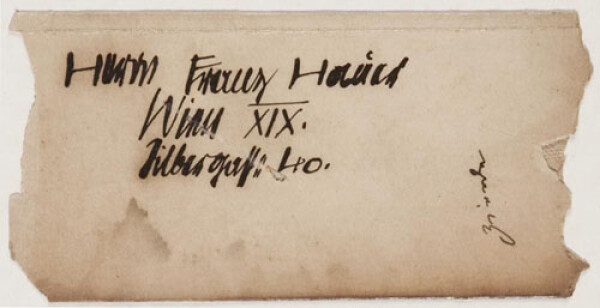 Herrn Franz Hauer
Wien XIX.
Silbergasse 40.